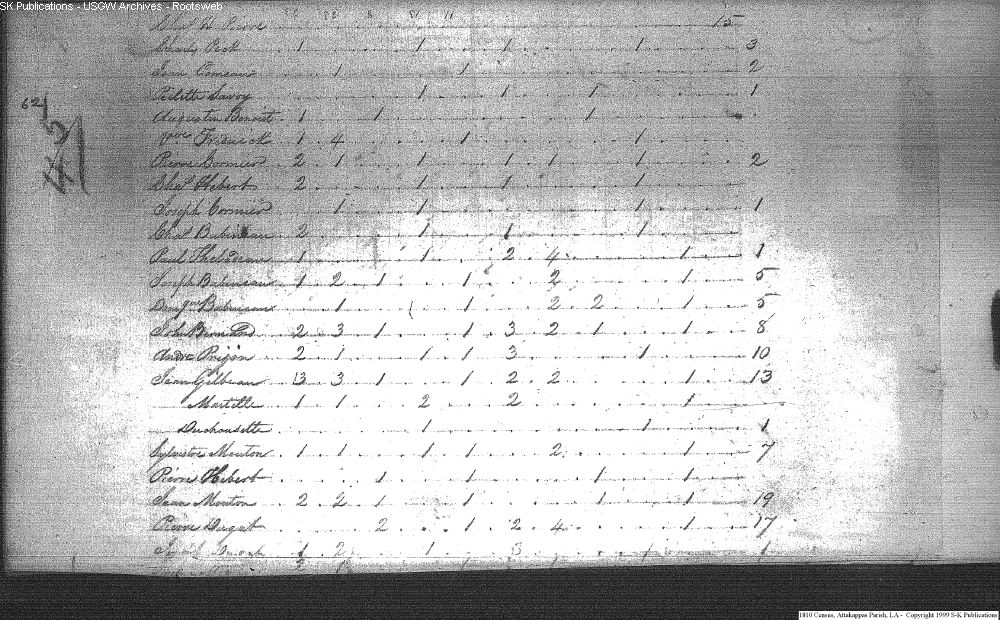 SK Publications - USGW Archives - Rootsweb
15
Charles Peck 1 . . . 1 . 1 . . 1 . 3
Jean Comeau . 1 . . 1 . . . . . . 2
Savoy . . . 1 . 1 . 1 . . 1
62
45
Augustin Benoit 1 . 1 . . . . 1
1 4 . . 1 . . . 1
Pierre Cormier 2 . 1 . 1 . 1 1 . 1 . 2
Chas Hebert 2 . . . 1 . 1 . . 1
Joseph Cormier . 1 . 1 . . . . 1 . 1
Chas Babineau 2 . . . 1 . 1 . . 1
Paul Thebideau 1 . . . 1 . 2 4 . . 1 . 1
Joseph Babineau 1 . 2 . 1 . 1 . 2 . . 1 . 5
Babineau . 1 . . 1 . 2 2 . 1 . 5
John Bernard 2 . 3 1 . 1 . 3 . 2 . 1 . 1 . 8
Andre Prejon 2 . 1 . . 1 1 3 . . 1 . 10
Jean Gilbeau 3 . 3 . 1 . 1 . 2 . 2 . . 1 . 13
Martille 1 . 1 . 2 . 2 . . . 1
Duchousette . . . 1 . . . . 1 . 1
Sylvistre Mouton 1 . 1 . 1 . 1 . 2 . . 1 . 7
Pierre Hebert . . 1 . 1 . . 1 . 1
Jean Mouton 2 . 2 1 . 1 . . 1 . 1 . 19
Pierre Dugat . . 2 . . 1 . 2 . 4 . . 1 . 17
1 2 . . 1 . 3 . . 1 . 1
1810 Census, Attakappas Parish, LA - Copyright 1999 S-K Publications